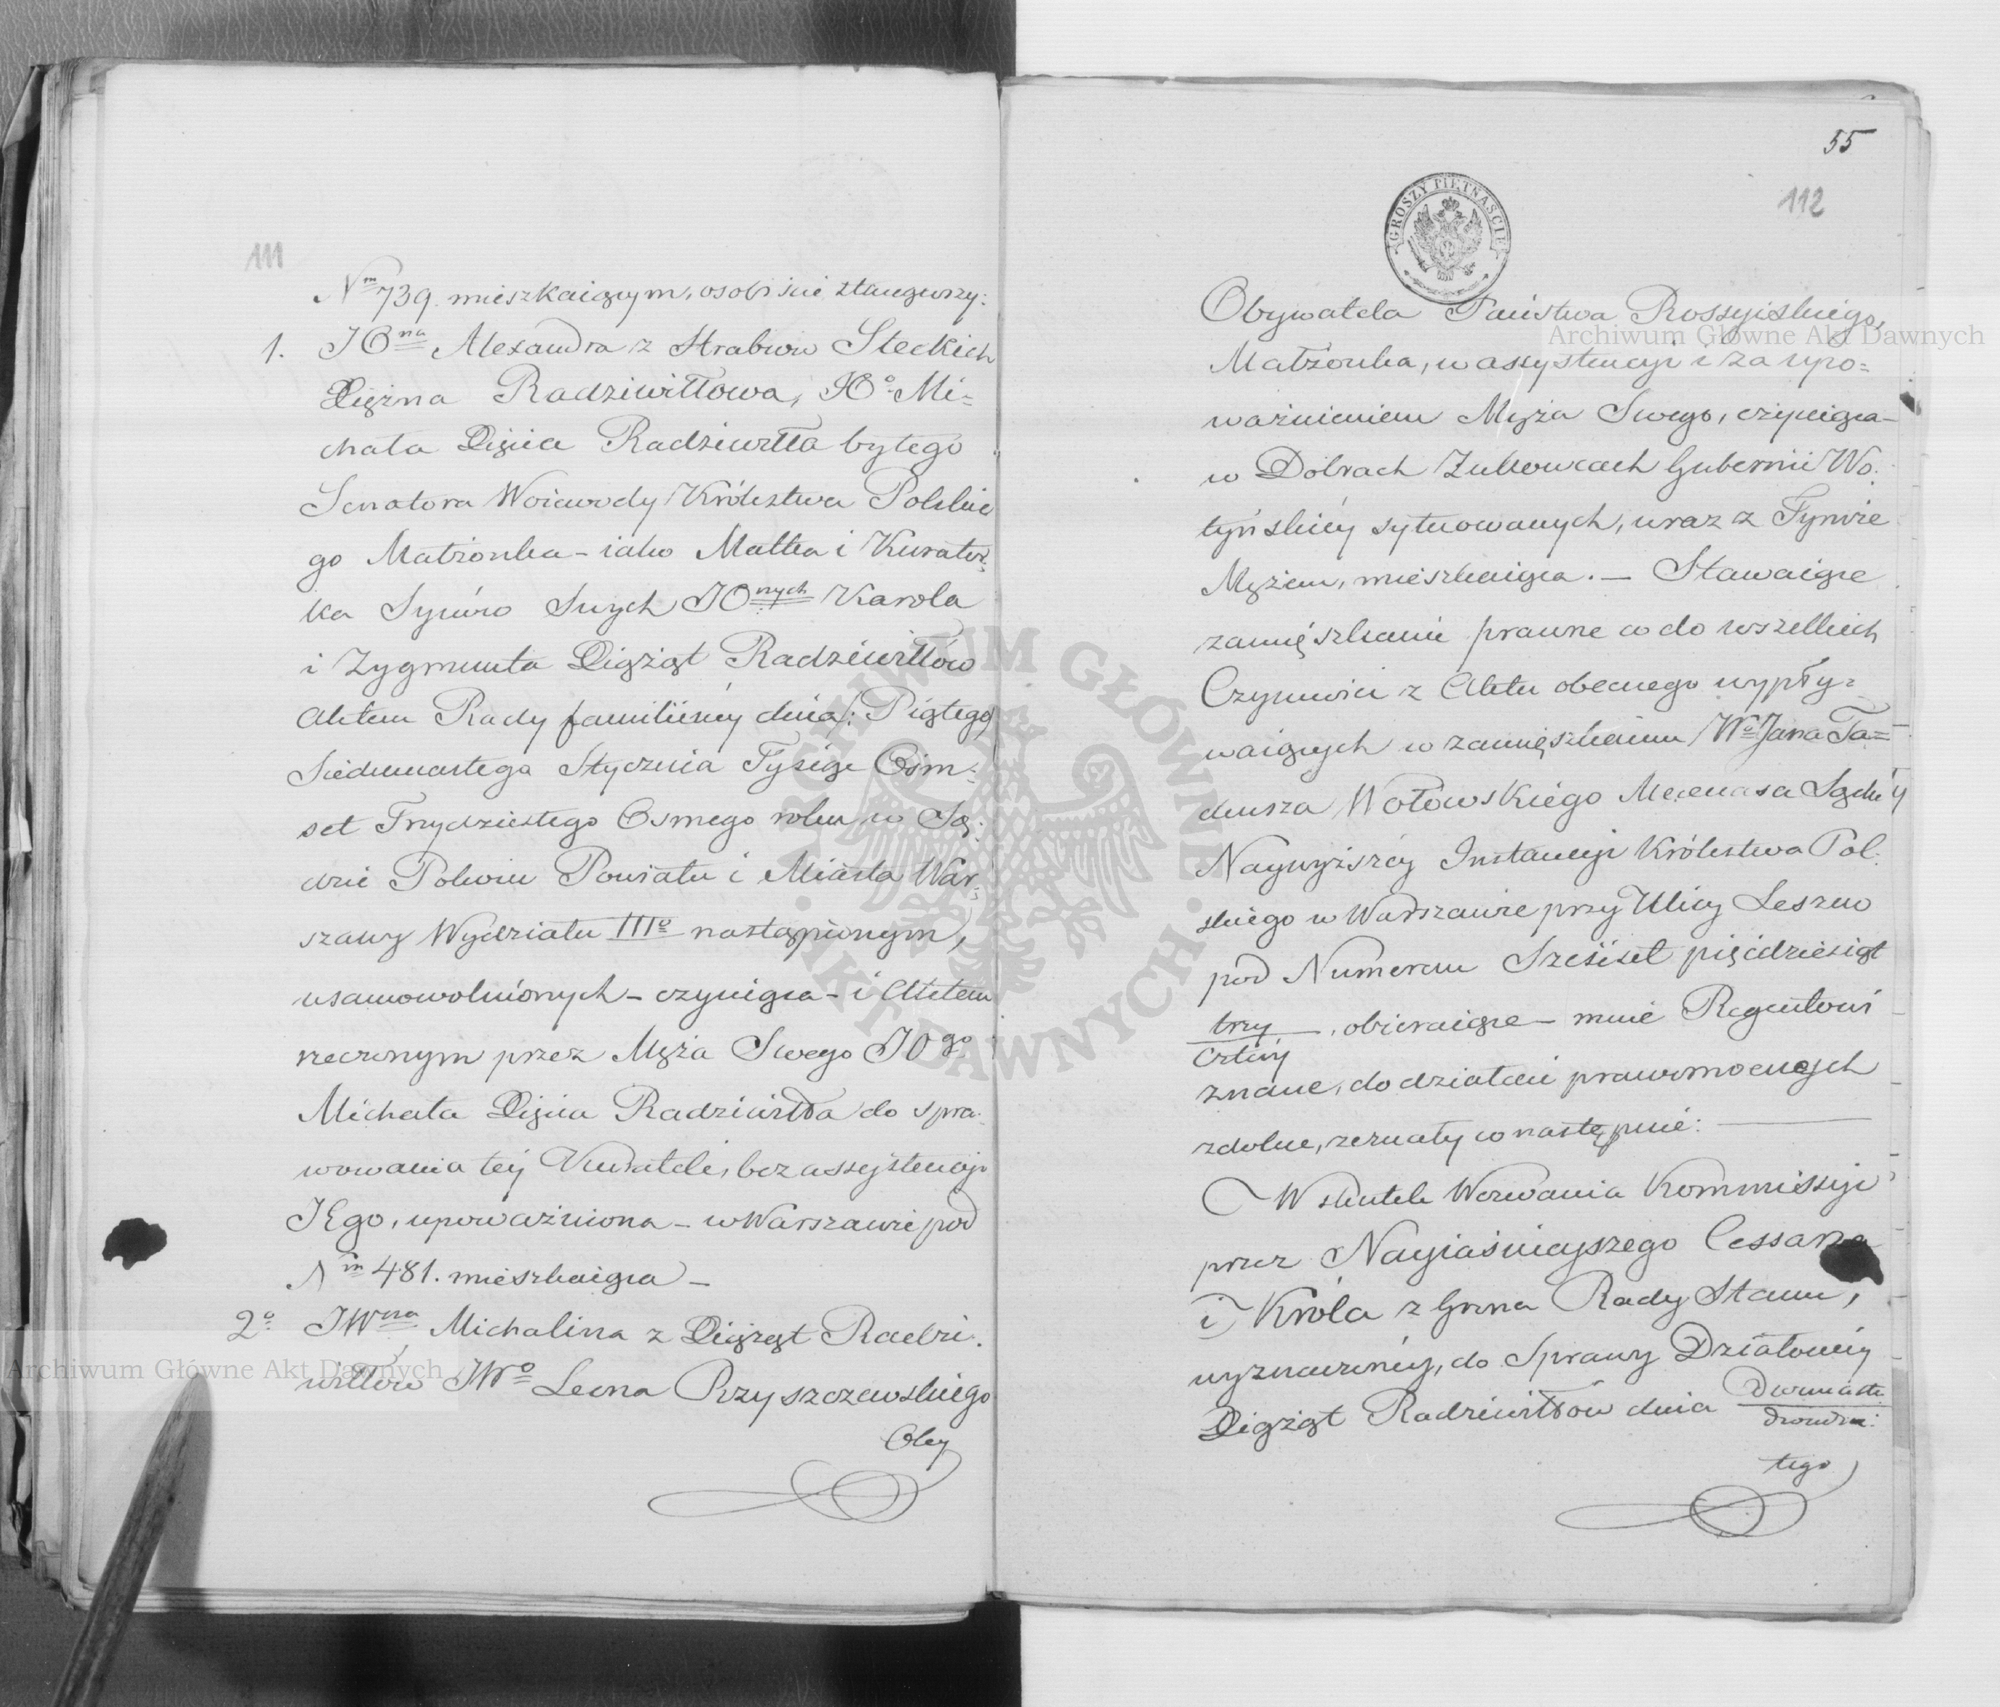 111
Nm 739. mieszkaiącym, osobiście stanęwszy:
1. JOna Alexandra z Hrabiów Steckich
Xiężna Radziwiłłowa, JOo Mi=
chała Xięcia Radziwiłła byłego
Senatora Woiewody Królestwa Polskie
go Małżonka – iako Matka i Kurator=
ka Synów Swych JOnych Karola
i Zygmunta Xiążąt Radziwiłłów
Aktem Rady familiiney dnia /: Piątego
Siedmnastego Stycznia Tysiąc Ośm=
set Trzydziestego Osmego roku w Są=
dzie Pokoiu Powiatu i Miasta War=
szawy Wydziału IIIo nastąpionym,
usamowolnionych – czyniąca – i Aktem
rzeczonym przez Męża Swego JOgo
Michała Xięcia Radziwiłła do spra=
wowania téy Kurateli, bez assystencyi
JEgo, upoważniona – w Warszawie pod
Nm 481. mieszkaiąca –
2o JWna Michalina z Xiążąt Radzi=
wiłłów JWo Leona Przyszczewskiego
Oby
55
112
GROSZY PIĘTNAŚCIE
Obywatela Państwa Rossyiskiego,
Małżonka, w assystencyi i za upo=
ważnieniem Męża Swego, czyniąca –
w Dobrach Zukowcach Gubernii Wo=
łyńskiéy sytuowanych, wraz z Tymże
Mężem, mieszkaiąca. – Stawaiące
zamięszkanie prawne co do wszelkich
Czynności z Aktu obecnego wypły=
waiących w zamięszkaniu Wo Jana Ta=
deusza Wołowskiego Mecenasa Sądu
Naywyższéy Instancyi Królestwa Pol=
skiego w Warszawie przy Ulicy Leszno
pod Numerem Sześćset pięćdziesiąt
trzy, obieraiące – mnie Reientowi
cztéry
znane, do działań prawomocnych
zdolne, zeznały co następuie:
W skutek Wezwania Kommissyi
przez Nayiaśnieyszego Cesarza
i Króla z Grona Rady Stanu,
wyznaczonéy, do Sprawy Działowéy
Xiążąt Radziwiłłów dnia Dwunaste
dwudzie:
tego
Archiwum Główne Akt Dawnych
Archiwum Główne Akt Dawnych
ARCHIWUM GŁÓWNE AKT DAWNYCH